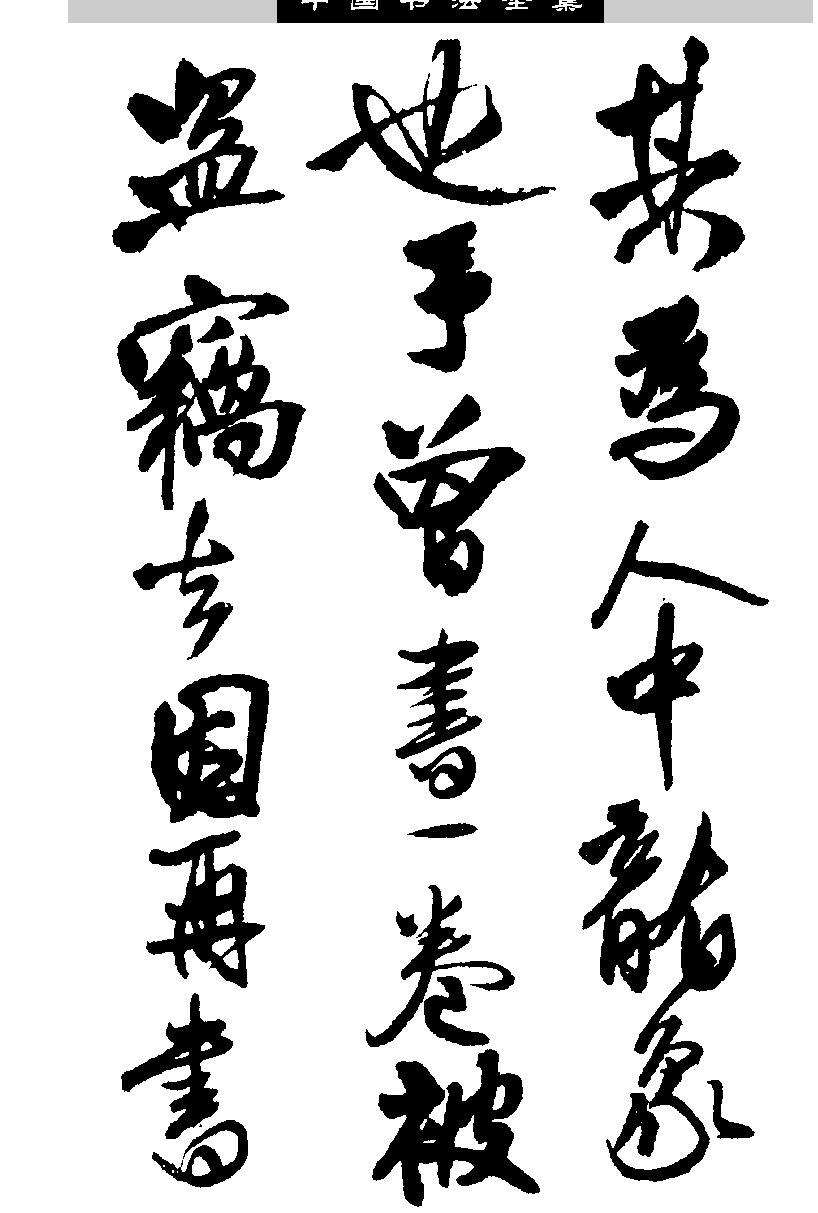 中国书法全集
其为人中龍象
也予曾書一卷被
盗竊去因再書